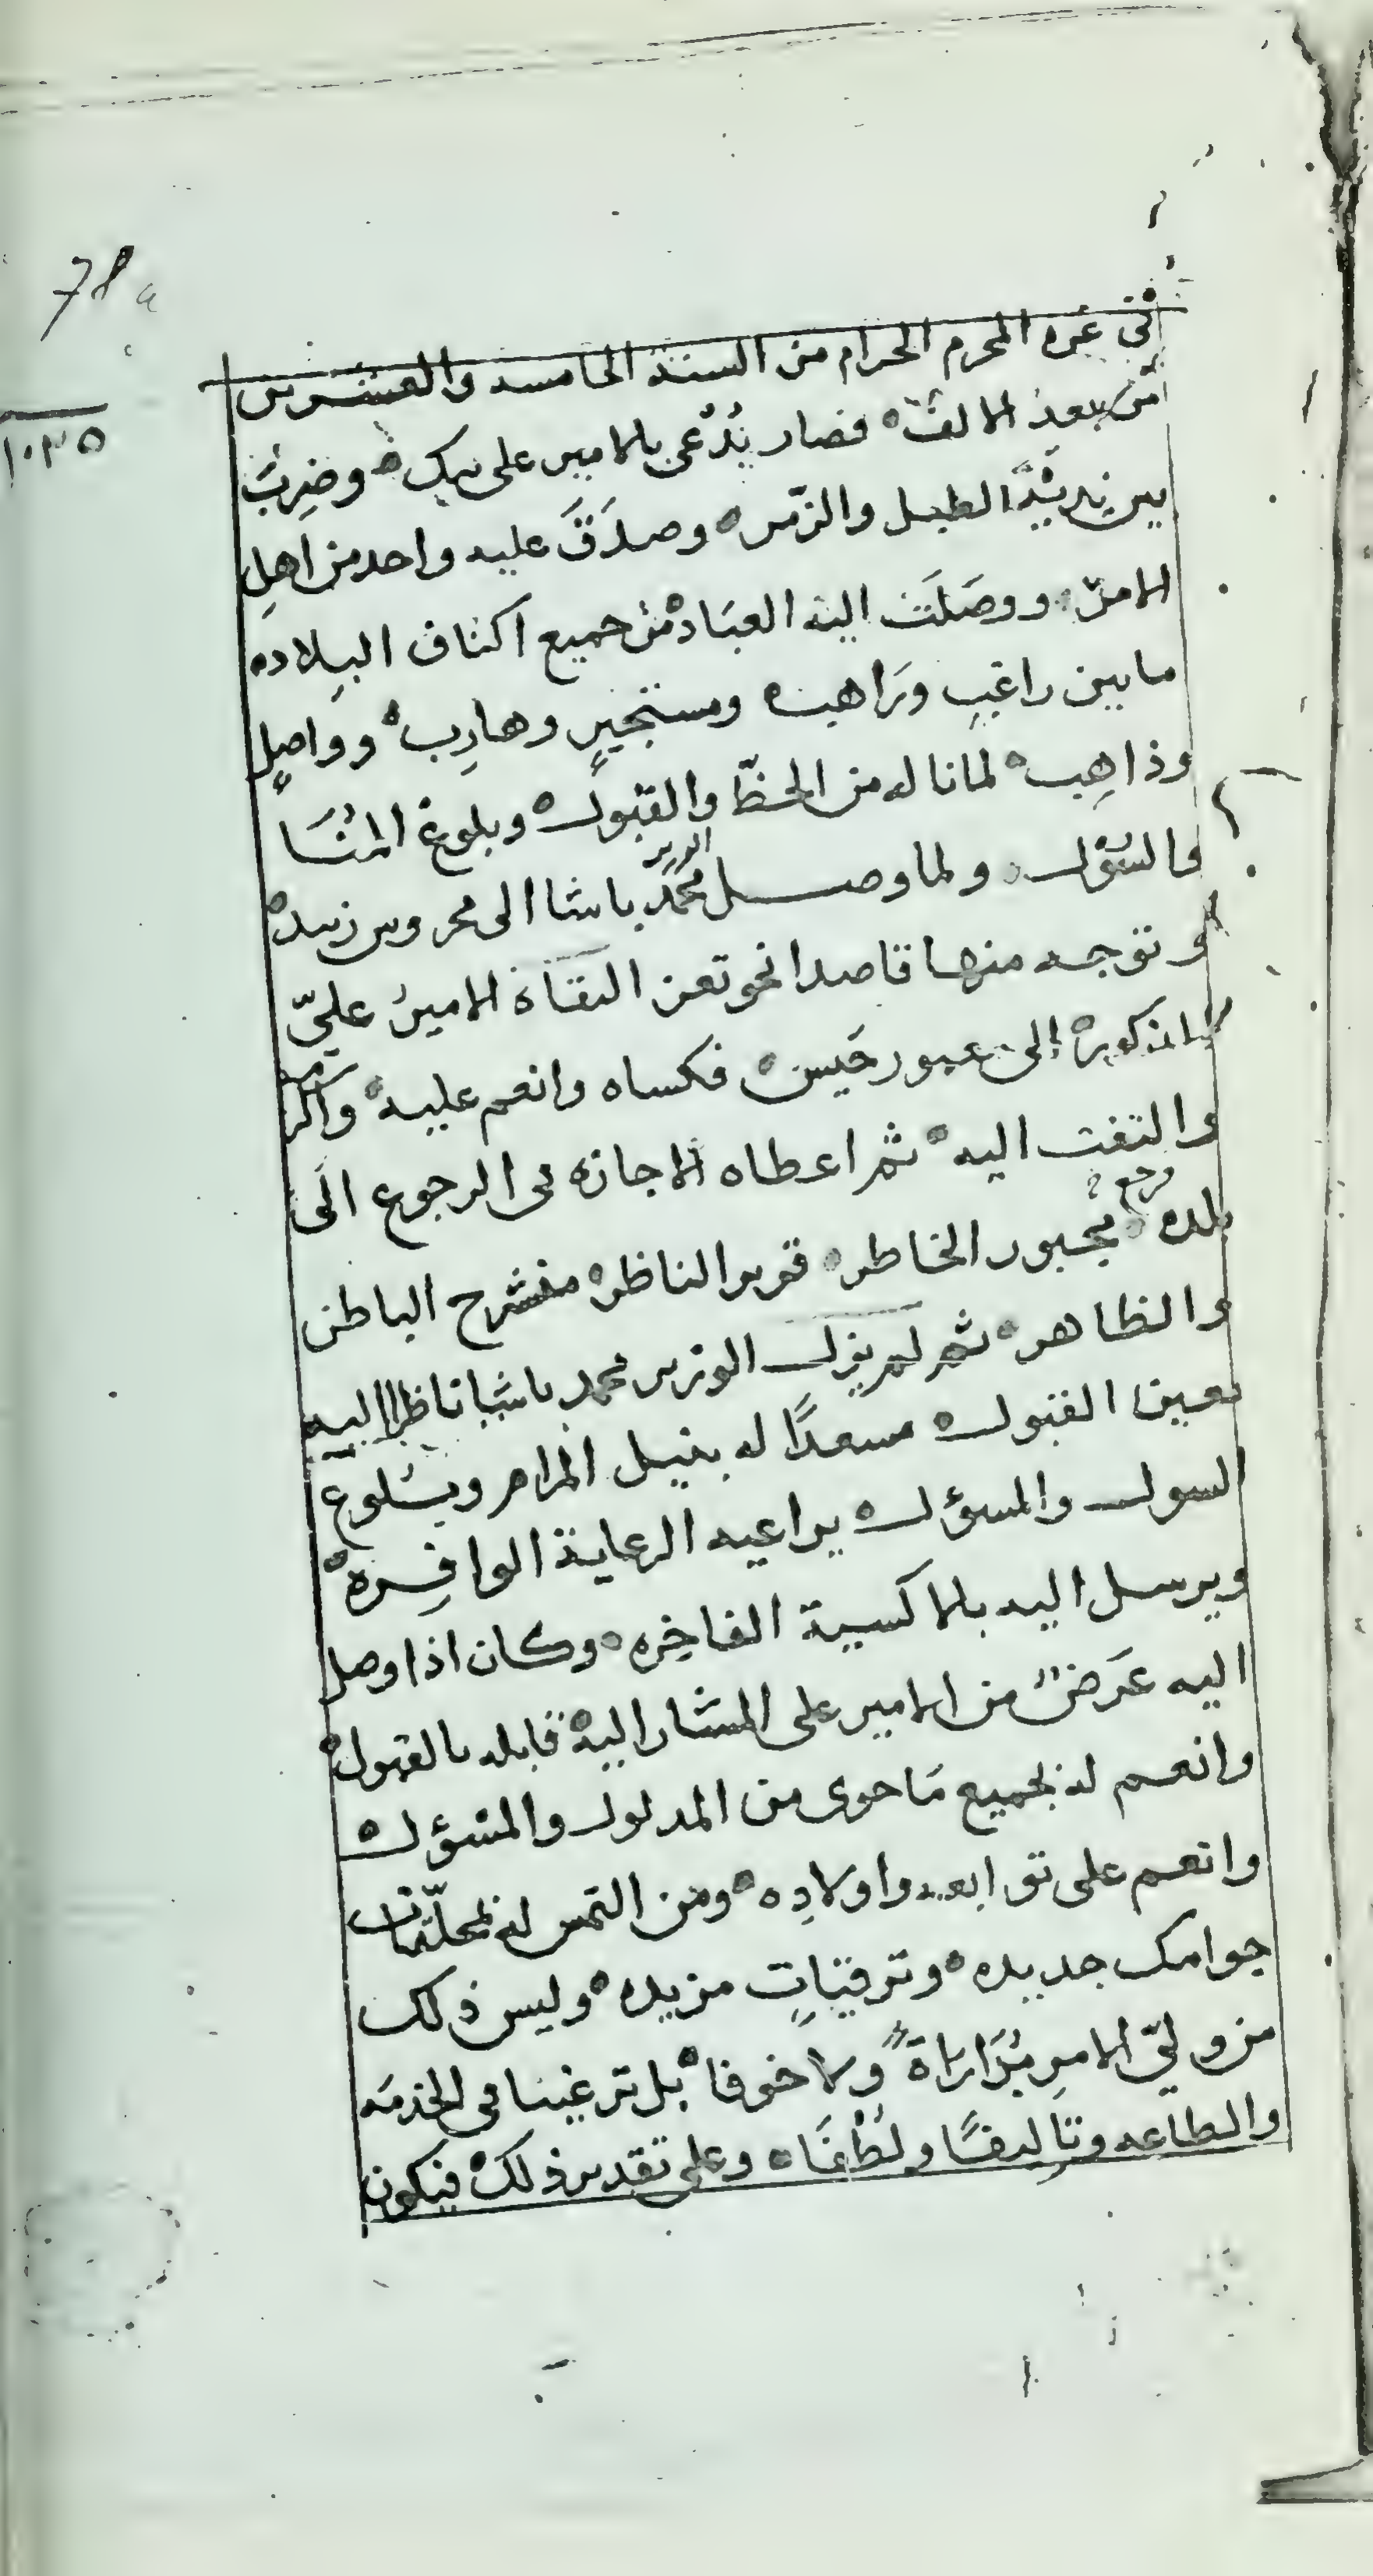 78a
١٠٢٥
في غره المحرم الحرام من السنة الخامسه والعشرين
من بعد الالف فصار يُدْعى بالامير على بيك وضرِبَ
بين يديه الطبل والزمر وصدَقَ عليه واحد من اهلِ
الامر ووصَلَت اليه العبَاد من جميع اكناف البِلاد
ما بين راغبٍ ورَاهب ومستجيرٍ وهارِب وواصلٍ
وذاهِب لما ناله من الحظّ والقبول وبلوغ المنَا
والسؤل ولما وصل الوزير محمّد باشا الى محروس زبيد
وتوجه منها قاصدا نحو تعز التقاهُ الامير عليّ
المذكور إلى حيس فكساه وانعم عليه واكرمه
والتفت اليه ثم اعطاه الاجازه فى الرجوع الَى
بلده فرجع مجبور الخاطر قرير الناظر منشرح الباطن
والظاهر ثم لم يزل الوزير محمد باشا ناظرا اليه
بعين القبول مسعدًا له بنيل المرام وبُلوغ
السول والمسؤل يراعيه الرعاية الوافِره
ويرسل اليه بالاكسية الفاخِره وكان اذا وصل
اليه عَرَضٌ من الامير على المشار اليه قابله بالقبول
وانعم له بجميع مَا حوى من المدلول والمسؤل
وانعم على توابعه واولادِه ومن التمس له
جوامك جديده وترقيَاتٍ مزيده وليس ذلك
من وليّ الامرِ مُدَاراةً ولا خوفا بل ترغيبا فى الخدمَه
والطاعه وتالِيفًا ولُطْفَا وعلى تقدير ذلك فيكون